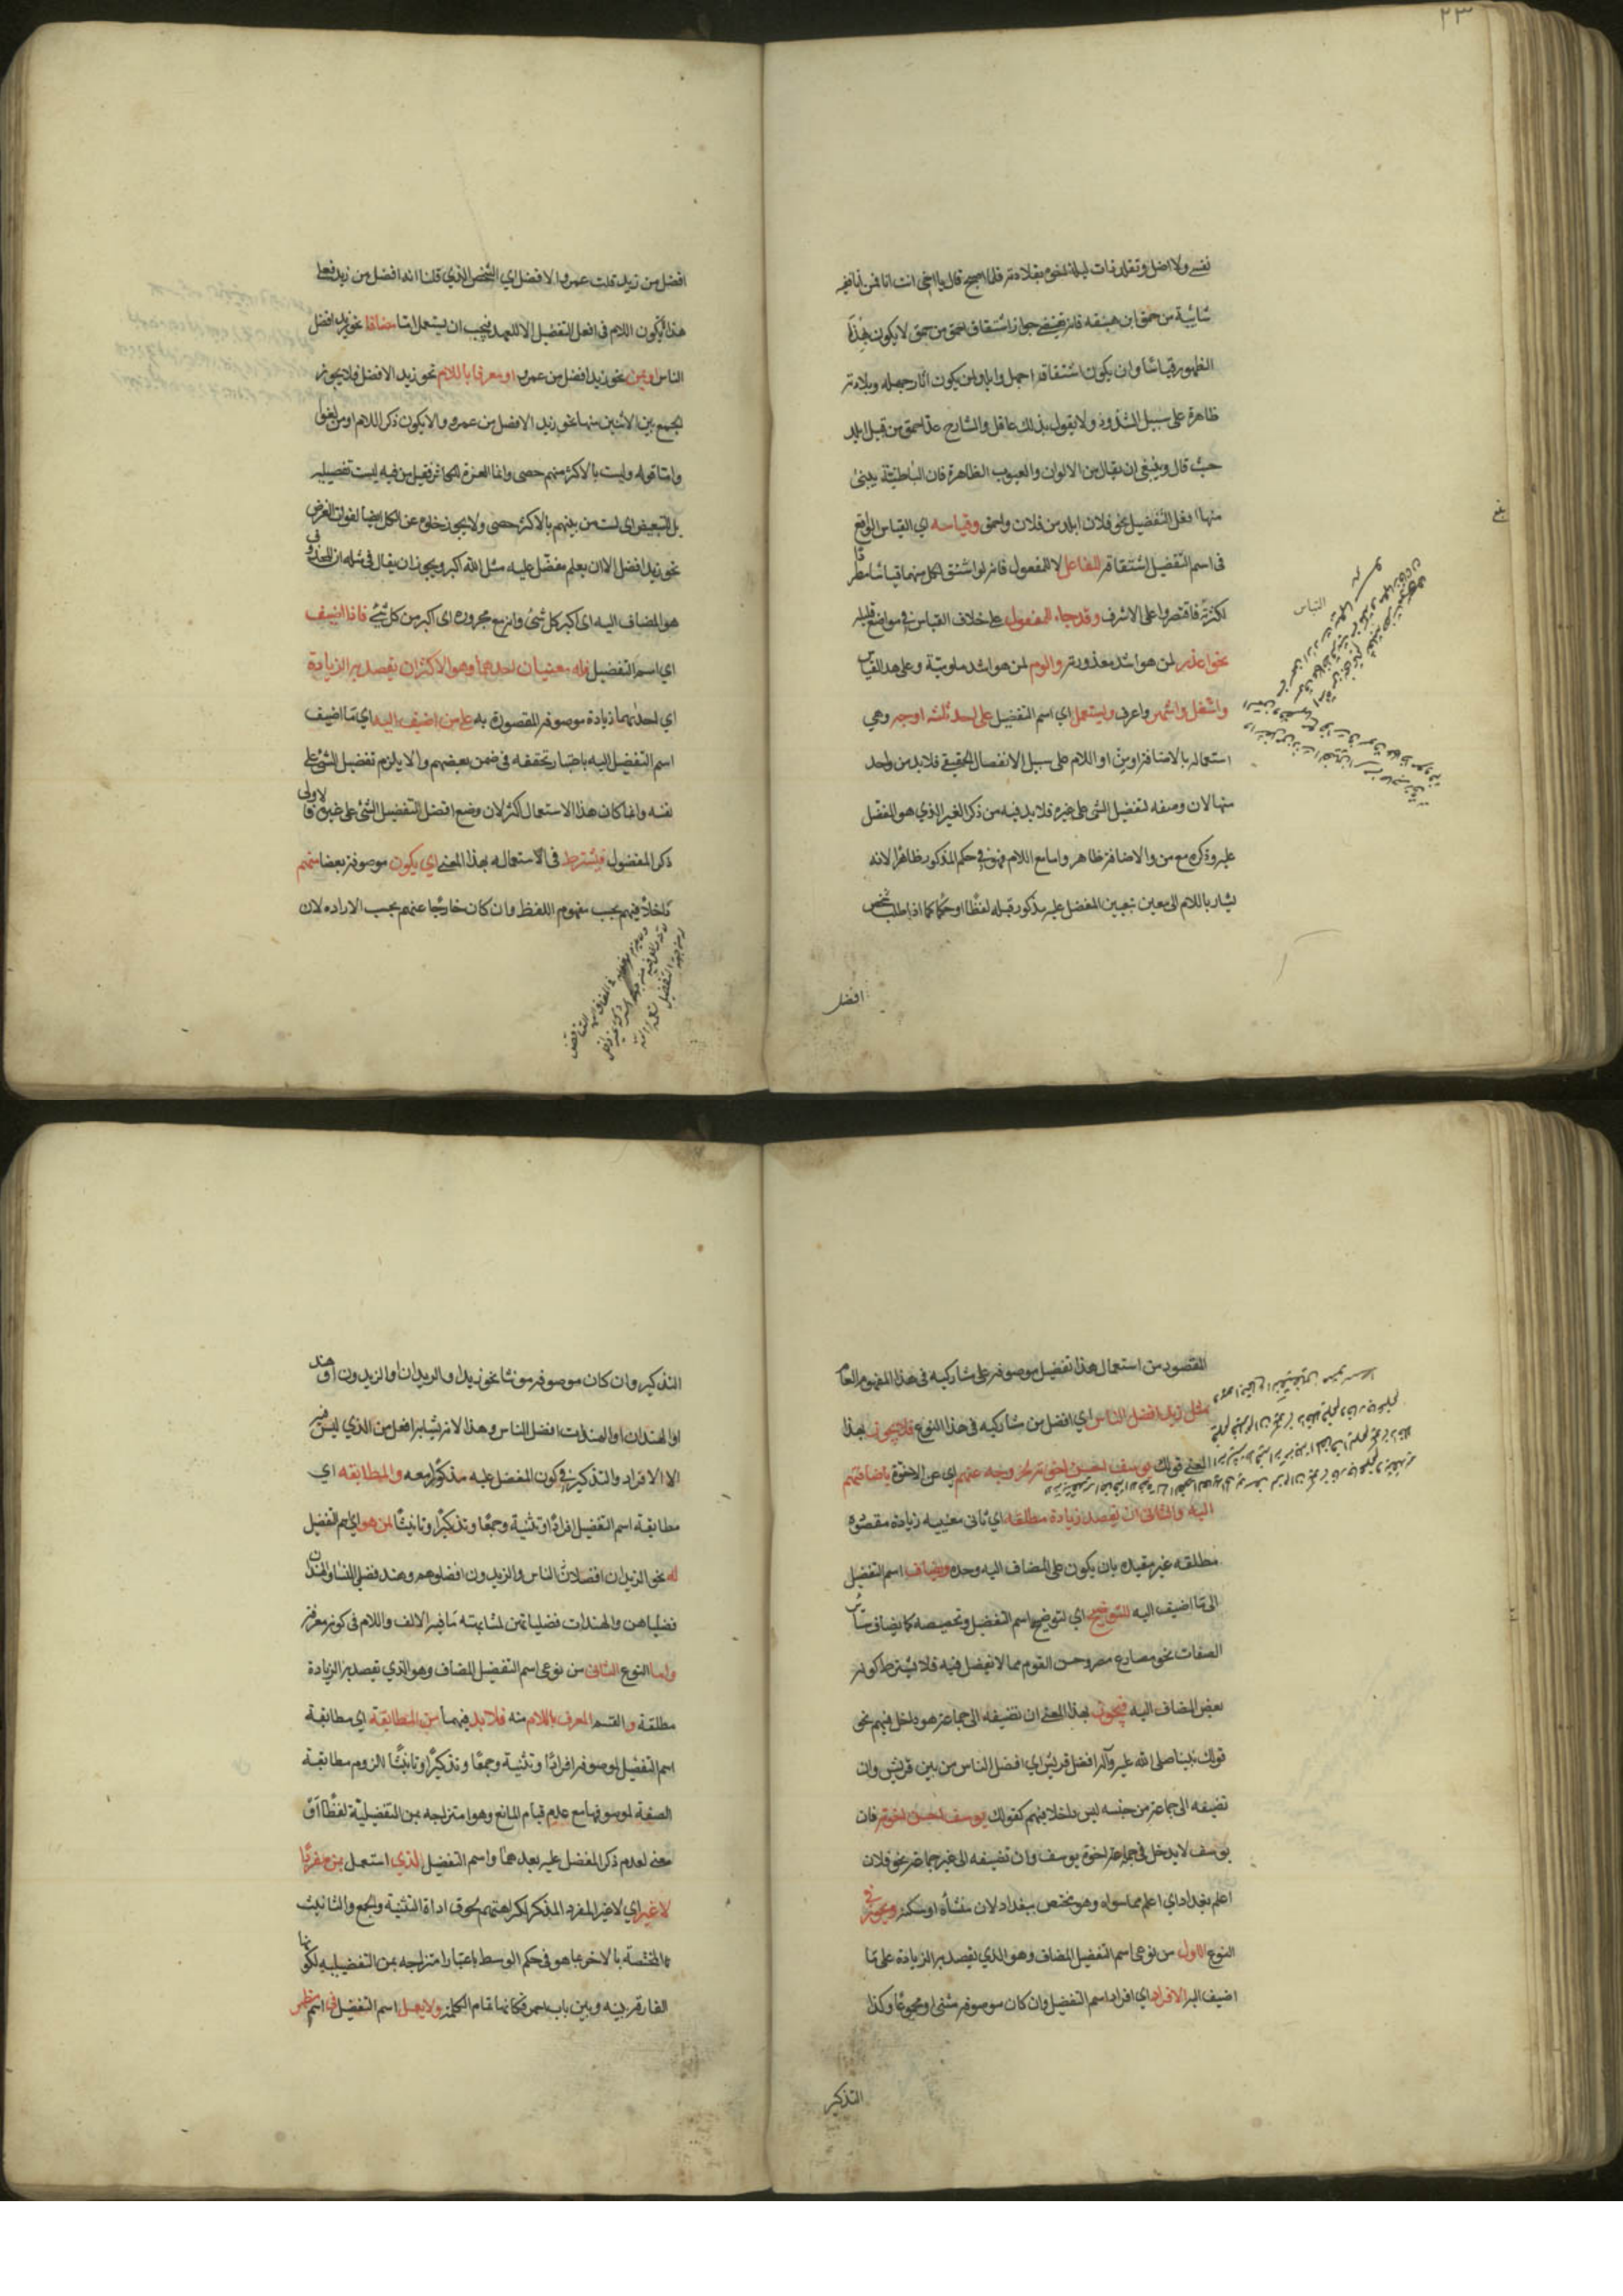 ٢٣
نفسه ولا اضل وتقلد ذات ليلة اخوه بقلادته فلما اصبح قال يا اخي انت انا فمن انا فهي
شائبة من حمق ابن هبنقه فانه يقتضي جواز اشتقاق احمق من حمق لا يكون بهذا
الظهور قياسا وان يكون اشتقاقه اجهل وابلد لمن يكون اثار جهله وبلادته
ظاهرة على سبيل الشذوذ ولا يقول بذلك عاقل والشارح عد احمق من قبيل ابلد
حيث قال وينبغي ان يقال من الالوان والعيوب الظاهرة فان الباطنية يبنى
منها افعل التفضيل نحو فلان ابلد من فلان واحمق وقياسه اي القياس الواقع
في اسم التفضيل اشتقاقه للفاعل لا للمفعول فانه لو اشتق لكل منهما قياسا مطردا
لكثر فاقتصروا على الاشرف وقد جاء للمفعول على خلاف القياس في مواضع قليلة
نحو اعذر لمن هو اشد معذورية والوم لمن هو اشد ملومية وعلى هذا القياس
واشغل واشهر واعرف ويستعمل اي اسم التفضيل على احد ثلثه اوجه وهي
استعماله بالاضافة او من او اللام على سبيل الانفصال الحقيقي فلا بد من واحد
منها لان وضعه لتفضيل الشئ على غيره فلا بد فيه من ذكر الغير الذي هو المفضل
عليه وذكره مع من والاضافة ظاهر واما مع اللام فهو في حكم المذكور ظاهرا لانه
يشار باللام الى معين بتعيين المفضل عليه مذكور قبله لفظا او حكما كما اذا طلب شخص
افضل
افضل من زيد قلت عمرو الافضل اي الشخص الذي قلنا انه افضل من زيد فعلى
هذا لا يكون اللام في افعل التفضيل الا للعهد فيجب ان يستعمل اما مضافا نحو زيد افضل
الناس او بمن نحو زيد افضل من عمرو او معرفا باللام نحو زيد الافضل فلا يجوز
الجمع بين الاثنين منها نحو زيد الافضل من عمرو والا يكون ذكر اللام او من لغوا
واما قوله ولست بالاكثر منهم حصى وانما العزة للكاثر فقيل من فيه ليست تفضيلية
بل للتبعيض اي لست من بينهم بالاكثر حصى ولا يجوز خلوه عن الكل ايضا لفوات الغرض
نحو زيد افضل الا ان يعلم مفضل عليه مثل الله اكبر ويجوز ان يقال في مثله ان المحذوف
هو المضاف اليه اي اكبر كل شئ وانه مع مجروره اي اكبر من كل شئ فاذا اضيف
اي اسم التفضيل فله معنيان احدهما وهو الاكثر ان يقصد به الزيادة
اي احدهما زيادة موصوفه المقصودة به على من اضيف اليه اي ما اضيف
اسم التفضيل اليه باعتبار تحققه في ضمن بعضهم والا يلزم تفضيل الشئ على
نفسه وانما كان هذا الاستعمال اكثر لان وضع افعل لتفضيل الشئ على غيره فالاولى
ذكر المفضول فيشترط في الاستعمال بهذا المعنى اي يكون موصوفه بعضا منهم
داخلا فيهم بحسب مفهوم اللفظ وان كان خارجا عنهم بحسب الاراده لان
المقصود من استعمال هذا تفضيل موصوفه على مشاركيه في هذا المفهوم العام
مثل زيد افضل الناس اي افضل من شاركيه في هذا النوع فلا يجوز بهذا
المعنى قولك يوسف احسن اخوته لخروجه عنهم اي عن الاخوة باضافتهم
اليه والثاني ان يقصد زيادة مطلقه اي ثاني معنييه زيادة مقصوده
مطلقه غير مقيده بان يكون على المضاف اليه وحده ويضاف اسم التفضيل
الى ما اضيف اليه للتوضيح اي لتوضيح اسم التفضيل وتخصيصه كما يضاف سائر
الصفات نحو مصارع مصر وحسن القوم مما لا تفضيل فيه فلا يشترط كونه
بعض المضاف اليه فيجوز بهذا المعنى ان تضيفه الى جماعة هو داخل فيهم نحو
قولك نبينا صلى الله عليه وآله افضل قريش اي افضل الناس من بين قريش وان
تضيفه الى جماعة من جنسه ليس داخلا فيهم كقولك يوسف احسن اخوته فان
يوسف لا يدخل في جملة اخوة يوسف وان تضيفه الى غير جماعة نحو فلان
اعلم بغداد اي اعلم مما سواه وهو مختص ببغداد لان منشأه او مسكنه ويجوز في
النوع الاول من نوعي اسم التفضيل المضاف وهو الذي يقصد به الزيادة على ما
اضيف اليه الافراد اي افراد اسم التفضيل وان كان موصوفه مثنى او مجموعا وكذا
التذكير
التذكير وان كان موصوفه مونثا نحو زيد او الزيدان او الزيدون او هند
او الهندان او الهندات افضل الناس وهذا لانه يشابه افعل من الذي ليس فيه
الا الافراد والتذكير في كون المفضل عليه مذكورا معه والمطابقه اي
مطابقة اسم التفضيل افرادا وتثنية وجمعا وتذكيرا وتانيثا لمن هو اي اسم التفضيل
له نحو الزيدان افضلا الناس والزيدون افضلوهم وهند فضلى النساء والهندان
فضلياهن والهندات فضلياتهن لمشابهته ما فيه الالف واللام في كونه معرفة
واما النوع الثاني من نوعي اسم التفضيل المضاف وهو الذي يقصد به الزيادة
مطلقة والقسم المعرف باللام منه فلا بد فيهما من المطابقة اي مطابقة
اسم التفضيل لموصوفه افرادا وتثنية وجمعا وتذكيرا وتانيثا للزوم مطابقة
الصفة لموصوفها مع عدم قيام المانع وهو امتزاجه بمن التفضيلية لفظا او
معنى لعدم ذكر المفضل عليه بعدهما واسم التفضيل الذي استعمل بمن مفرد
لا غير اي لا غير المفرد المذكر لكراهتهم لحوق اداة التثنية والجمع والتانيث
المختصة بالاخر بما هو في حكم الوسط باعتبار امتزاجه بمن التفضيلية لكونها
الفارقة بينه وبين باب احمر فكانها تمام الكلمة ولا يعمل اسم التفضيل في اسم مظهر